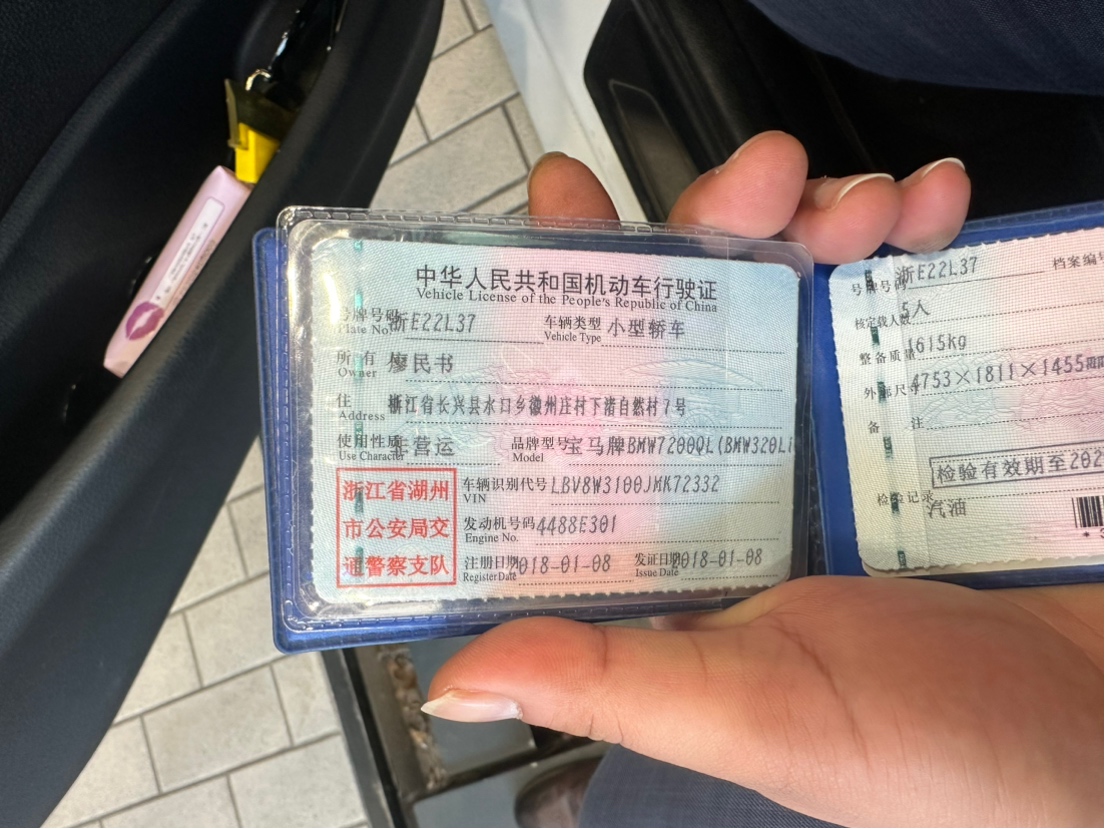 中华人民共和国机动车行驶证
Vehicle License of the People's Republic of China
号牌号码 浙E22L37 车辆类型 小型轿车
Plate No. Vehicle Type
所有 廖民书
Owner
住 浙江省长兴县水口乡徽州庄村下渚自然村7号
Address
使用性质 非营运 品牌型号 宝马牌BMW7200QL(BMW320Li
Use Character Model
浙江省湖州
市公安局交
通警察支队
车辆识别代号 LBV8W3100JMK72332
VIN
发动机号码 4488E301
Engine No.
注册日期 2018-01-08 发证日期 2018-01-08
Register Date Issue Date
号牌号码 浙E22L37 档案编号
核定载人数 5人
整备质量 1615kg
外廓尺寸 4753×1811×1455mm
备 注
检验有效期至202
检验记录
汽油